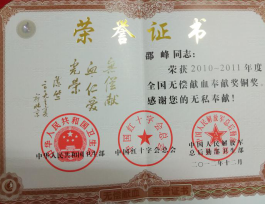 荣誉证书
邵峰同志：
荣获2010-2011年度
全国无偿献血奉献奖铜奖，
感谢您的无私奉献！
无偿献
血仁爱
光荣
中华人民共和国卫生部
中国红十字会总会
中国人民解放军
总后勤部卫生部
二〇一二年十二月